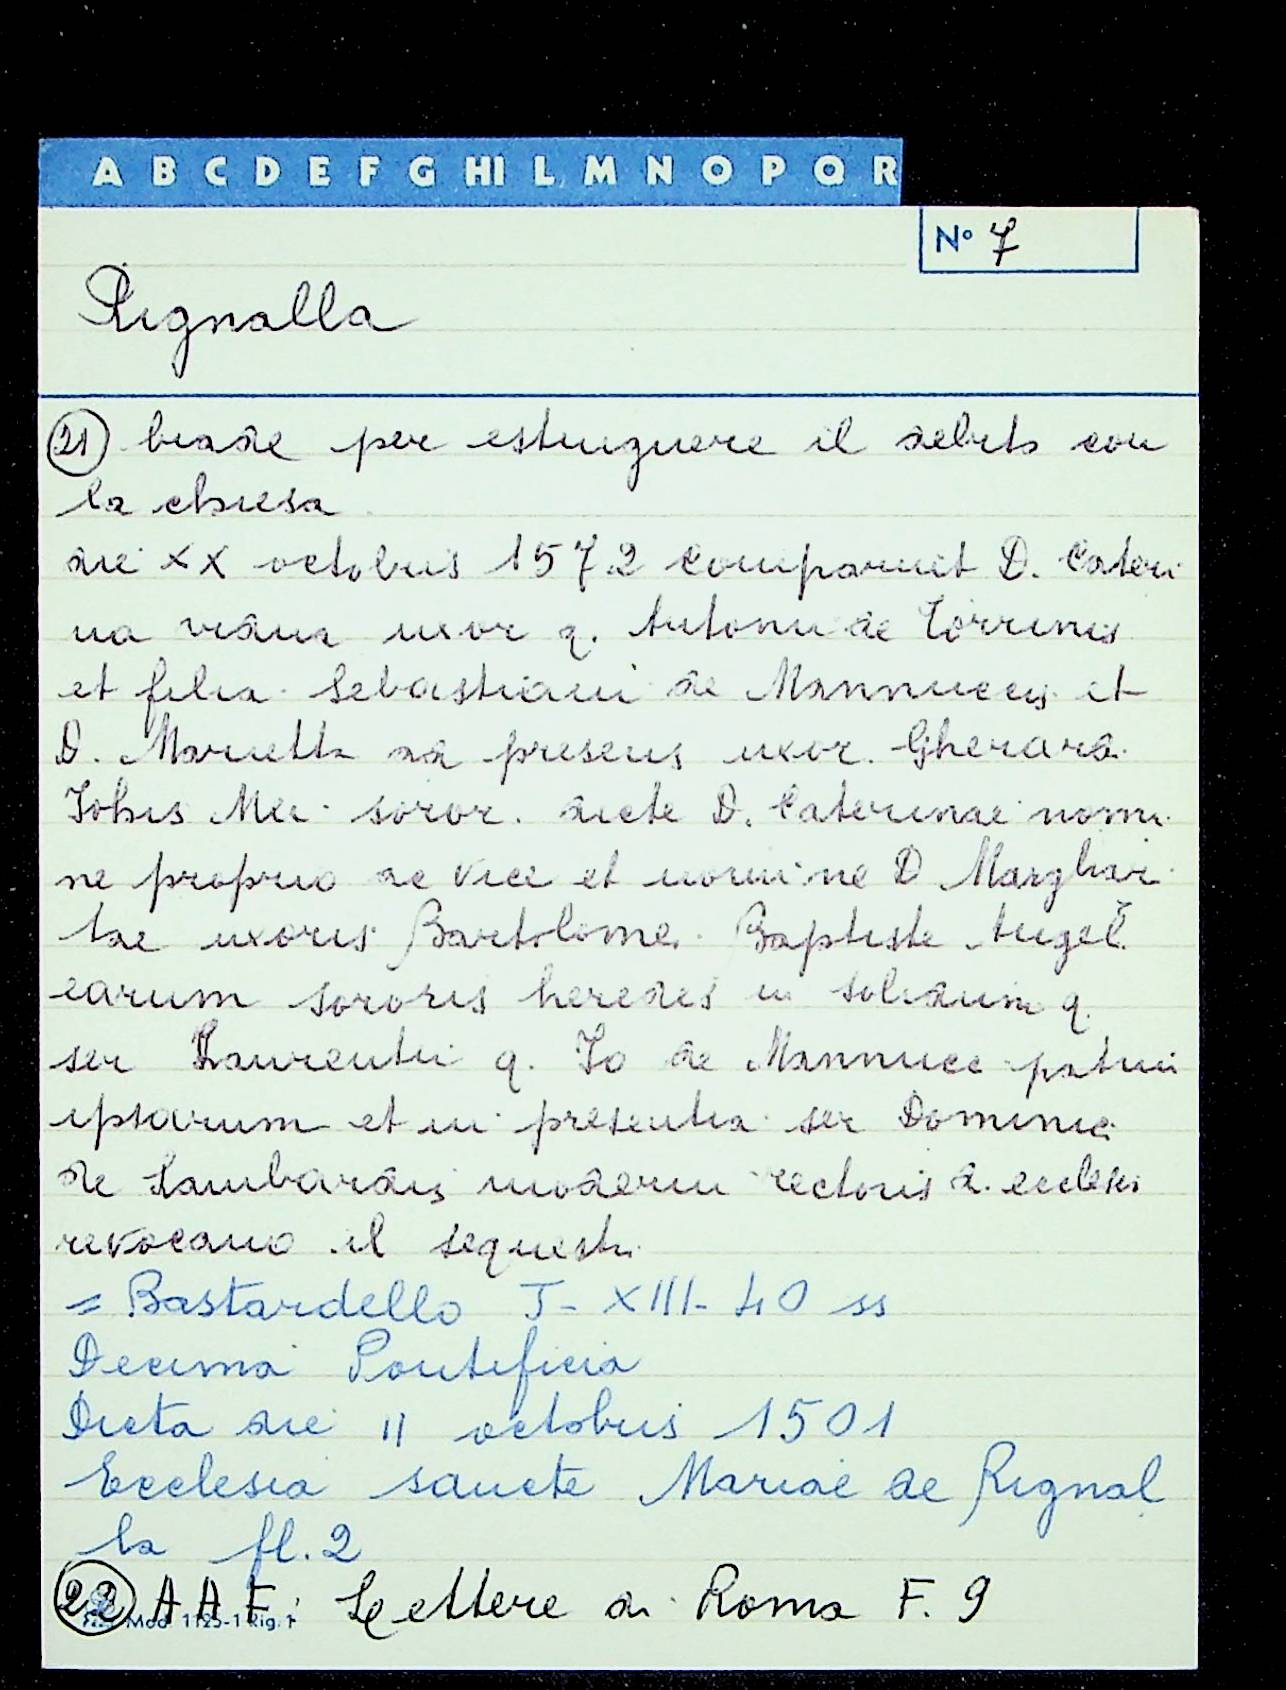 A B C D E F G HI L M N O P Q R
N° 7
Rignalla
21 biade per estinguere il debito con
la chiesa
die XX octobris 1572 comparuit D. Cateri
na vidua uxor q. Antonii de Torrinis
et filia Sebastiani de Mannuccis et
D. Marietta ad presens uxor Gherard.
Johis Mei soror. dicte D. Caterinae nomi
ne proprio ac vice et nomine D Marghari
tae uxoris Bartolomei Baptiste Angel.
earum sororis heredes in solidum q.
ser Laurentii q. Jo de Mannucc patrui
ipsarum et in presentia ser Dominici
de Lambardis moderni rectoris d. ecclesi
revocano il sequestr.
= Bastardello J - XIII - 40 ss
Decima Pontificia
Dicta die 11 octobris 1501
Ecclesia sancte Mariae de Rignal
la fl. 2
22 A A F. Lettere di Roma F. 9
Mod. 1125-1 Rig. 1